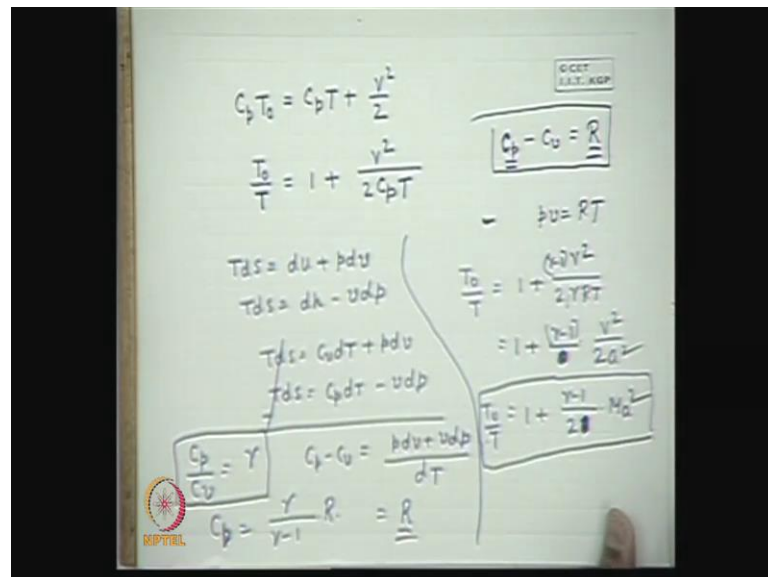 © CET
I.I.T. KGP
CpT₀ = CpT + V²/2
T₀/T = 1 + V²/2CpT
Tds = du + pdv
Tds = dh - vdp
Tds = CvdT + pdv
Tds = CpdT - vdp
Cp/Cv = γ
Cp - Cv = (pdv + vdp)/dT
Cp = γ/(γ-1) R.
= R
Cp - Cv = R
- pv = RT
T₀/T = 1 + (γ-1)V²/2γRT
= 1 + (γ-1) V²/2a²
T₀/T = 1 + (γ-1)/2 Ma²
NPTEL